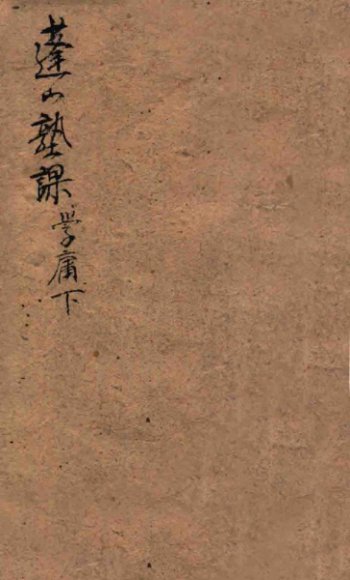 蓬山塾課學庸下